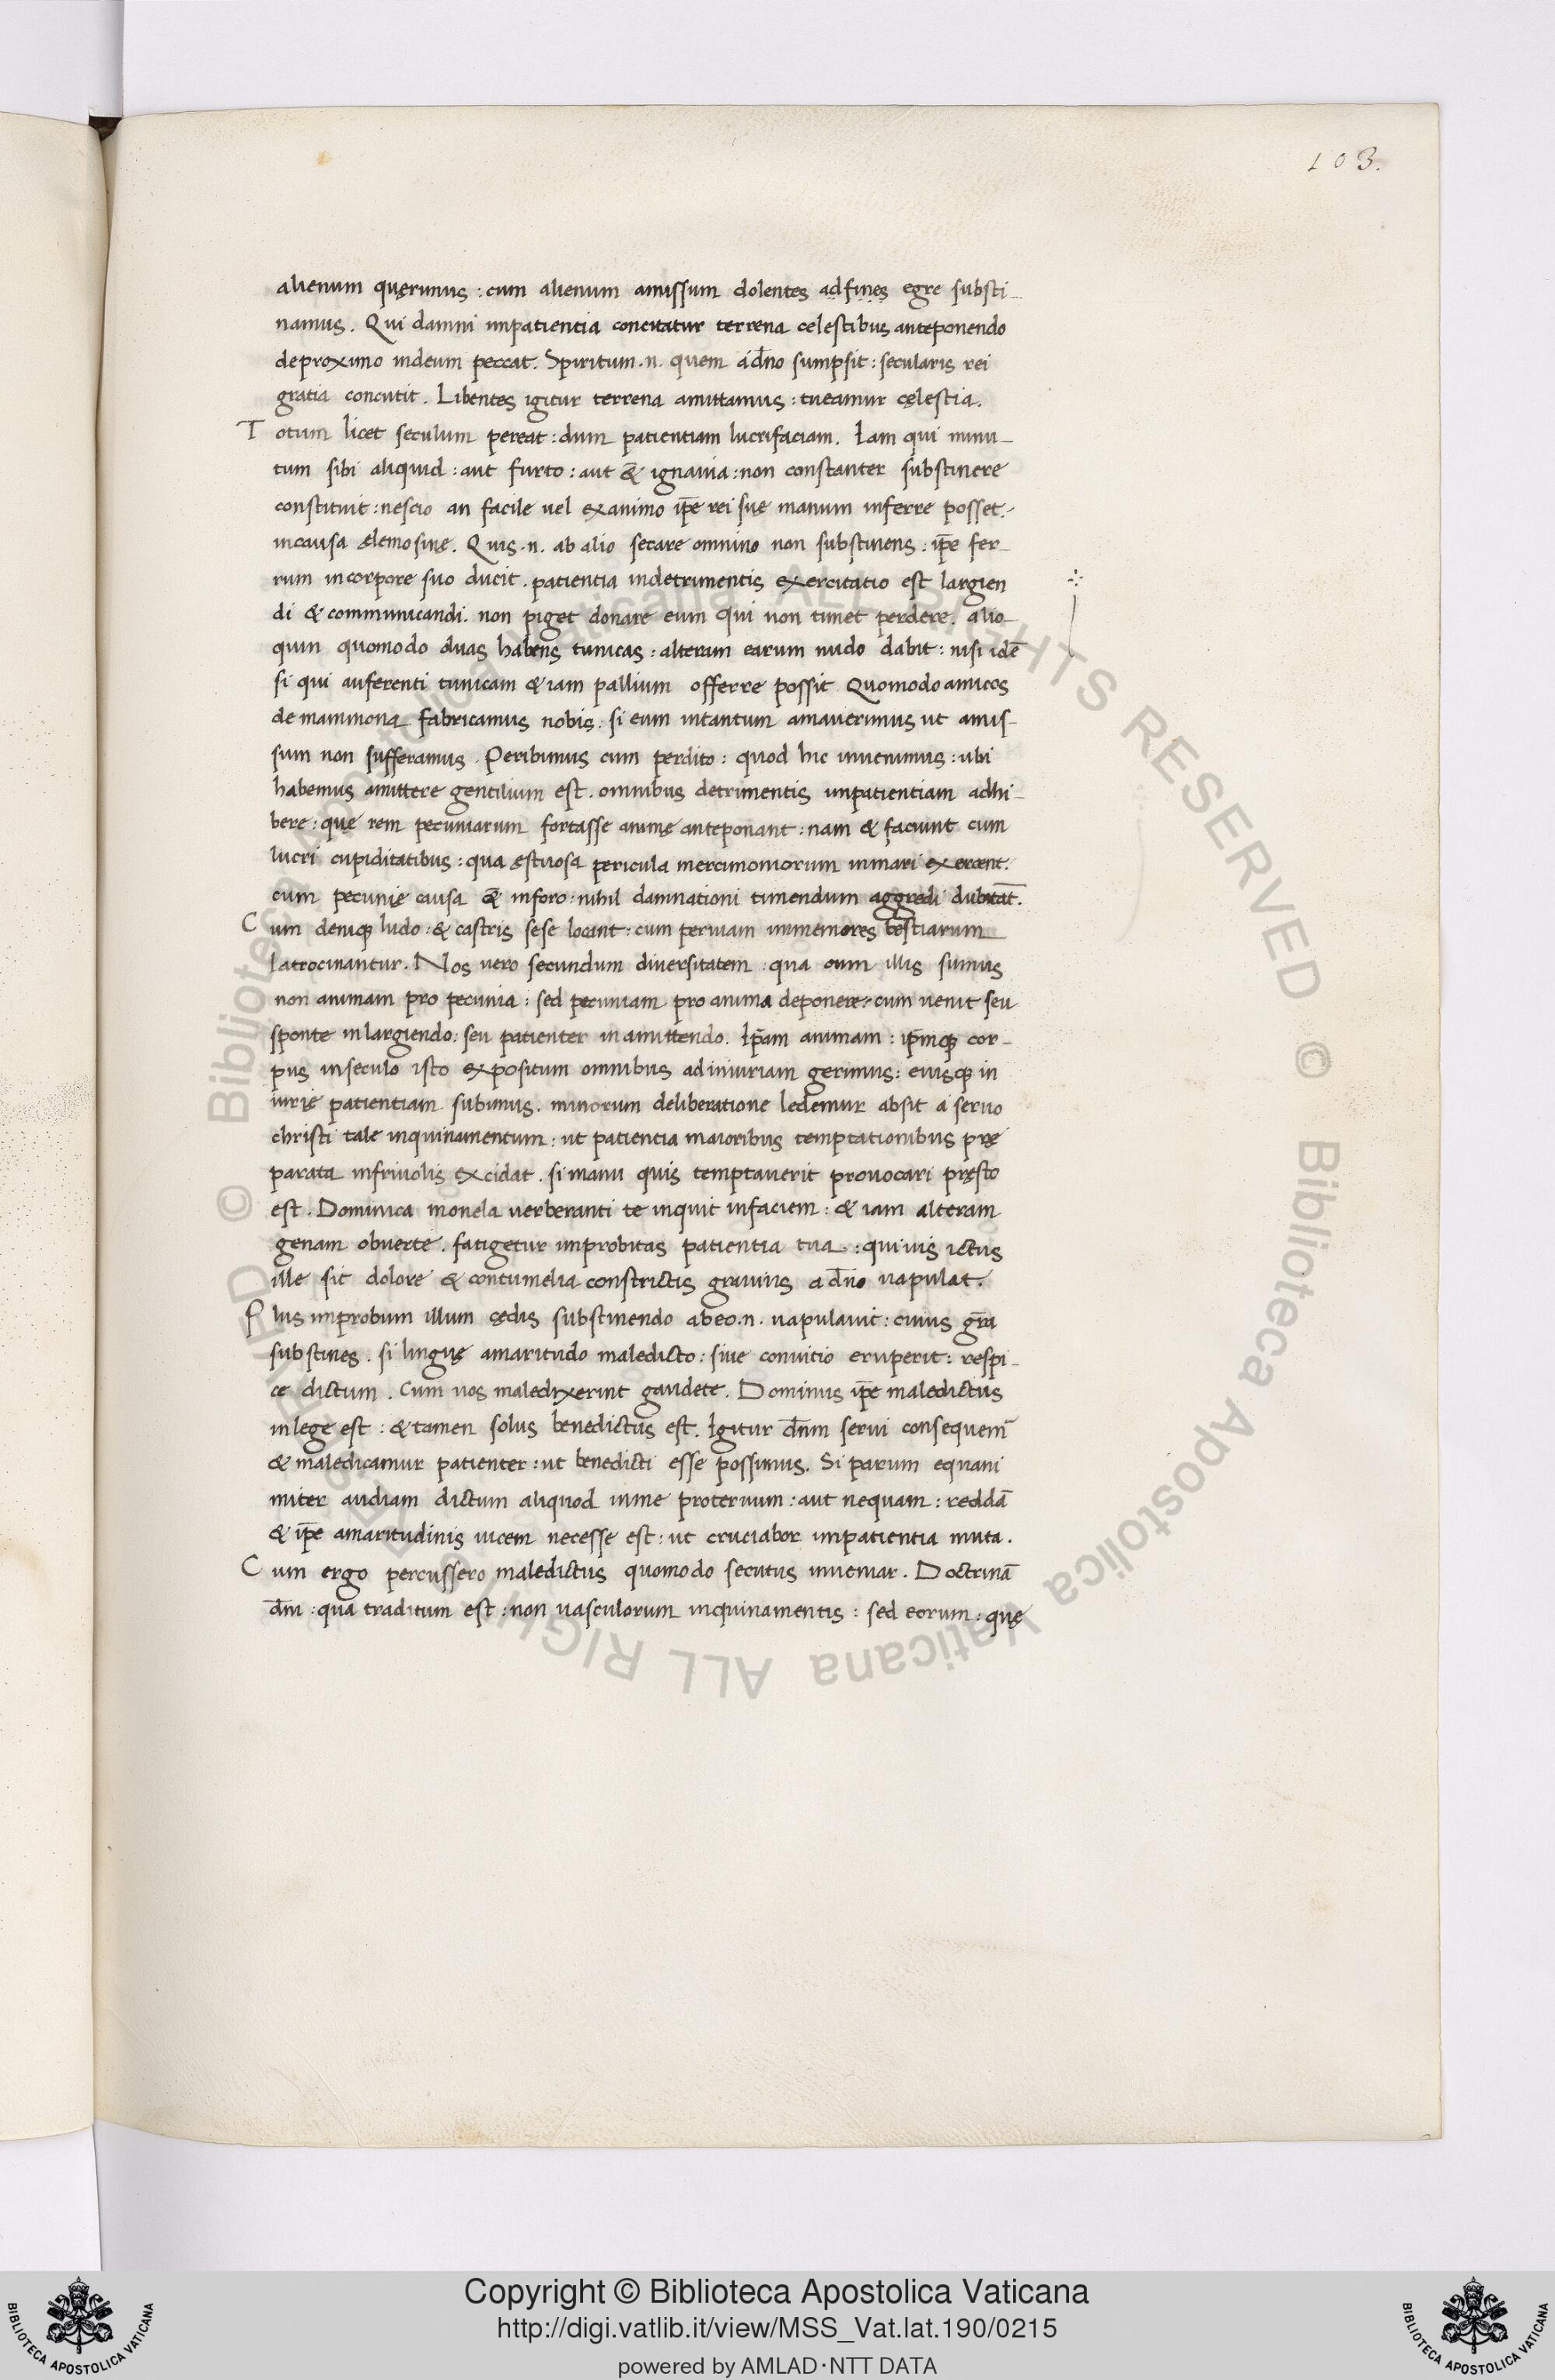 103.
alienum quęrimus : cum alienum amissum dolentes adfines egre substi-
namus. Qui damni inpatientia concitatur terrena celestibus anteponendo
deproximo indeum peccat. Spiritum .n. quem a dn̄o sumpsit : secularis rei
gratia concutit. Libentes igitur terrena amittamus : tueamur cęlestia.
Totum licet seculum pereat : dum patientiam lucrifaciam. Iam qui minu-
tum sibi aliquid : aut furto : aut & ignavia : non constanter substinere
constituit : nescio an facile vel exanimo ip̄e rei suę manum inferre posset
incausa elemosinę. Quis .n. ab alio secare omnino non substinens : ip̄e fer-
rum incorpore suo ducit. patientia indetrimentis exercitatio est largien
di & communicandi. non piget donare eum qui non timet perdere. alio-
quin quomodo duas habens tunicas : alteram earum nudo dabit : nisi idē
si qui auferenti tunicam & iam pallium offerre possit Quomodo amicos
de mammona fabricamus nobis : si eum intantum amaverimus ut amis-
sum non sufferamus. Peribimus cum perdito : quod hic invenimus : ubi
habemus amittere gentilium est. omnibus detrimentis inpatientiam adhi-
bere : quę rem pecuniarum fortasse animę anteponant : nam & faciunt cum
lucri cupiditatibus : qua ęstuosa pericula mercimoniorum inmari exercent.
cum pecunię causa & inforo : nihil damnationi timendum aggredi dubitāt.
Cum deniq; ludo : & castris sese locant : cum perviam inmemores bestiarum
latrocinantur. Nos vero secundum diversitatem : qua cum illis sumus
non animam pro pecunia : sed pecuniam pro anima deponere : cum venit seu
sponte inlargiendo : seu patienter in amittendo. Ip̄am animam : ip̄mq; cor-
pus inseculo isto expositum omnibus adiniuriam gerimus : eiusq; in
iurię patientiam subimus. minorum deliberatione ledemur absit a servo
christi tale inquinamentum : ut patientia maioribus temptationibus prę
parata infrivolis excidat. si manu quis temptaverit provocari pręsto
est. Dominica monela verberanti te inquit infaciem : & iam alteram
genam obverte. fatigetur improbitas patientia tua : quivis ictus
ille sit dolore & contumelia constrictis gravius a dn̄o vapulat.
Plus improbum illum cędis substinendo abeo .n. vapulavit : cuius gr̄a
substines. si linguę amaritudo maledicto : sive convitio eruperit : respi-
ce dictum. Cum vos maledixerint gaudete. Dominus ip̄e maledictus
inlege est : & tamen solus benedictus est. Igitur dn̄m servi consequem̄
& maledicamur patienter : ut benedicti esse possimus. Si parum equani
miter audiam dictum aliquod inme protervum : aut nequam : reddā
& ip̄e amaritudinis vicem necesse est : ut cruciabor inpatientia muta.
Cum ergo percussero maledictus quomodo secutus inveniar. Doctrinā
dn̄i : qua traditum est : non vasculorum inquinamentis : sed eorum : quę
Copyright © Biblioteca Apostolica Vaticana
http://digi.vatlib.it/view/MSS_Vat.lat.190/0215
powered by AMLAD·NTT DATA
BIBLIOTECA APOSTOLICA VATICANA
BIBLIOTECA APOSTOLICA VATICANA
© Biblioteca Apostolica Vaticana ALL RIGHTS RESERVED © Biblioteca Apostolica Vaticana ALL RIGHTS RESERVED